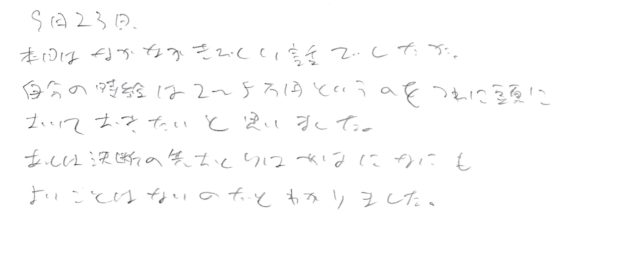 9月23日.
本日はなかなかきびしい話でしたが、
自分の時給は2〜5万円というのをつねに頭に
おいておきたいと思いました。
あとは決断の先おくりは なにも
よいことはないのだとわかりました。